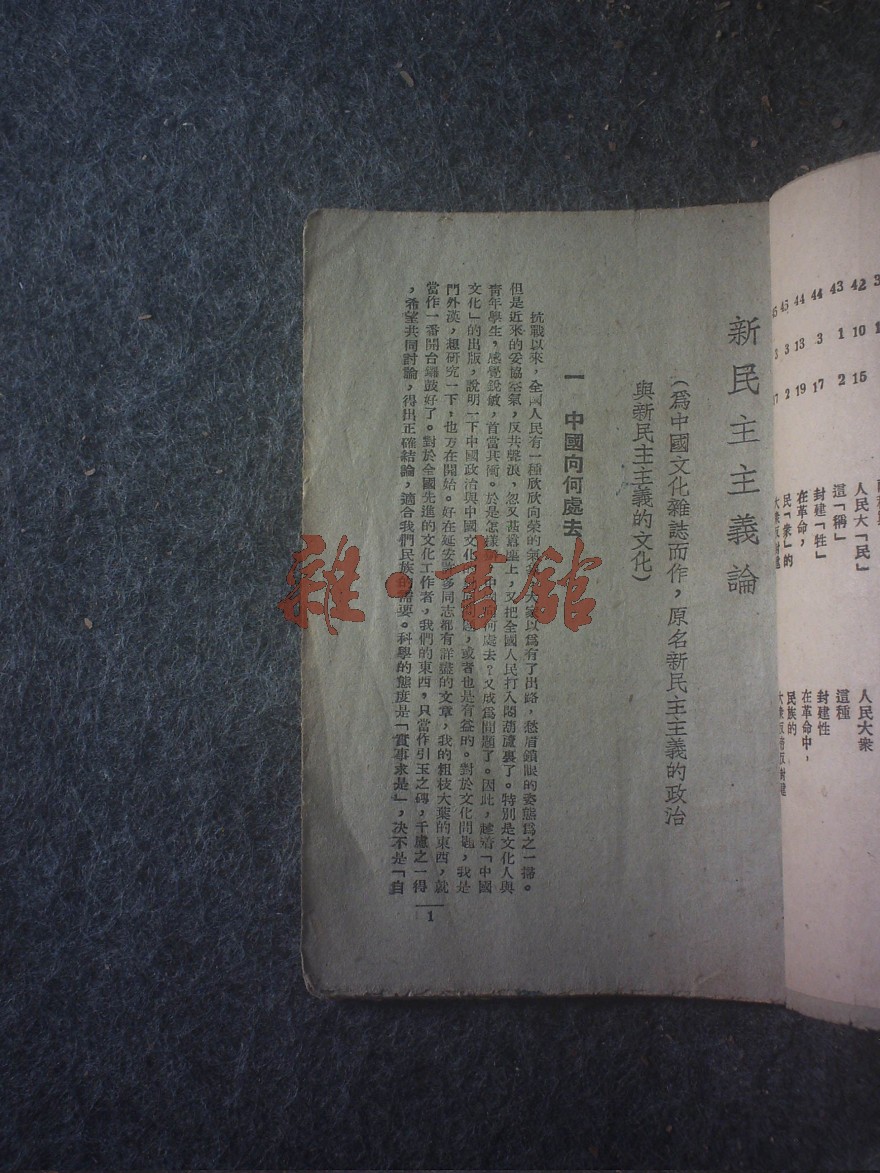 42 10 15 人民大「民」 人民大衆
43 1 2 這「稱」 這種
44 3 17 封建「牲」 封建性
44 13 19 在革命, 在革命中,
45 3 2 民「衆」的 民族的
新民主主義論
(爲中國文化雜誌而作,原名新民主主義的政治
與新民主主義的文化)
一 中國向何處去
抗戰以來,全國人民有一種欣欣向榮的氣象,大家以爲有了出路,愁眉鎖眼的姿態爲之一掃。
但是近來的妥協空氣,反共聲浪,忽又甚囂塵上,又把全國人民打入悶葫蘆裏了。特別是文化人與
青年學生,感覺銳敏,首當其衝。於是怎樣辦,中國向何處去?又成爲問題了。因此,趁着「中國
文化」的出版,說明一下中國政治與中國文化的動向問題,或者也是有益的。對於文化問題,我是
門外漢,想研究一下,也方在開始。好在延安許多同志都有詳盡的文章,我的粗枝大葉的東西,就
當作一番開台鑼鼓好了。對於全國先進的文化工作者,我們的東西,只當作引玉之磚,千慮之一得
,希望共同討論,得出正確結論,適合我們民族的需要。科學的態度是「實事求是」,決不是「自
1
雜·書館